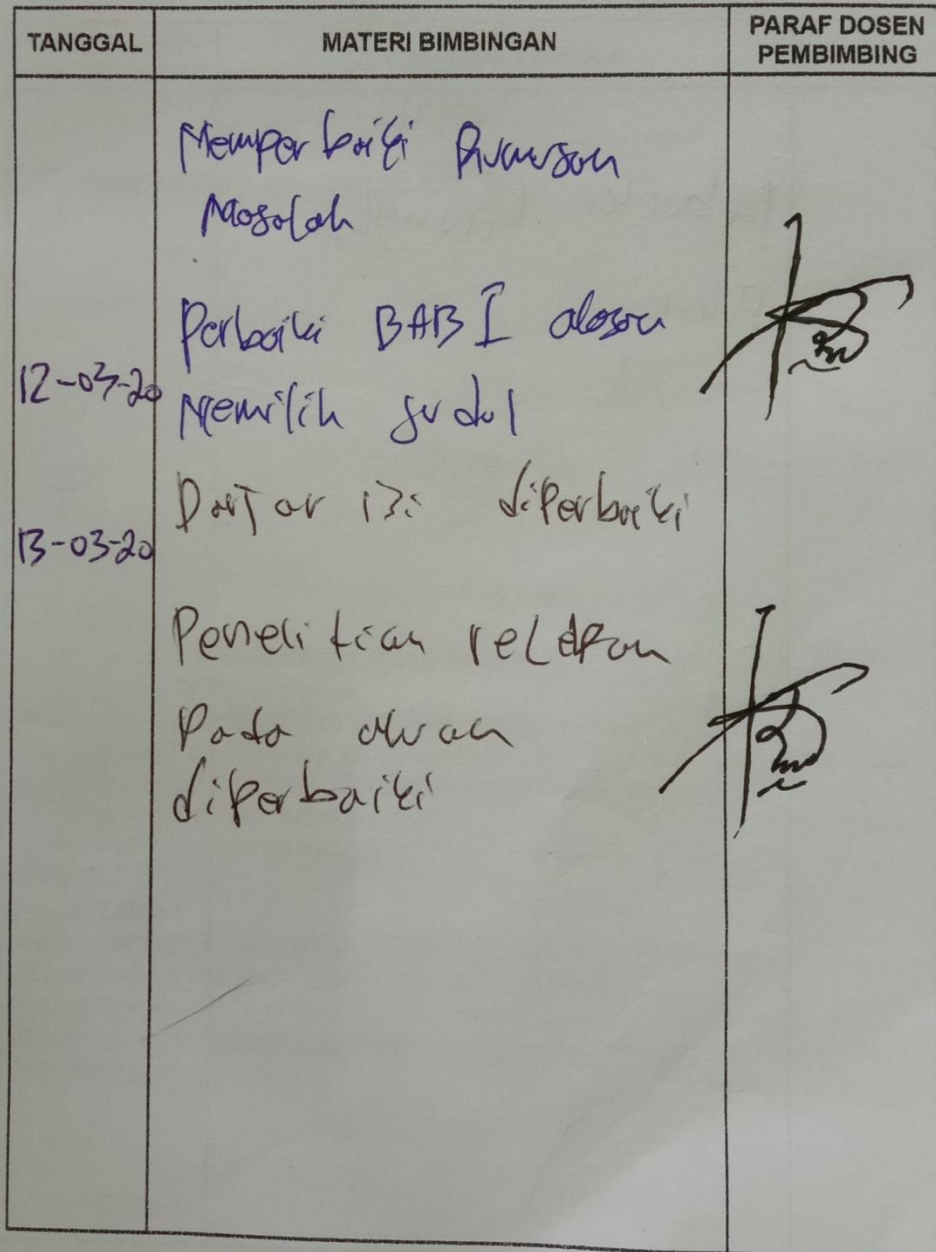 TANGGAL
MATERI BIMBINGAN
PARAF DOSEN
PEMBIMBING
Memperbaiki Rumusan
Masalah
Perbaiki BAB I alasan
12-03-20
Memilih judul
Daftar isi diperbaiki
13-03-20
Penelitian relevan
Pada
diperbaiki